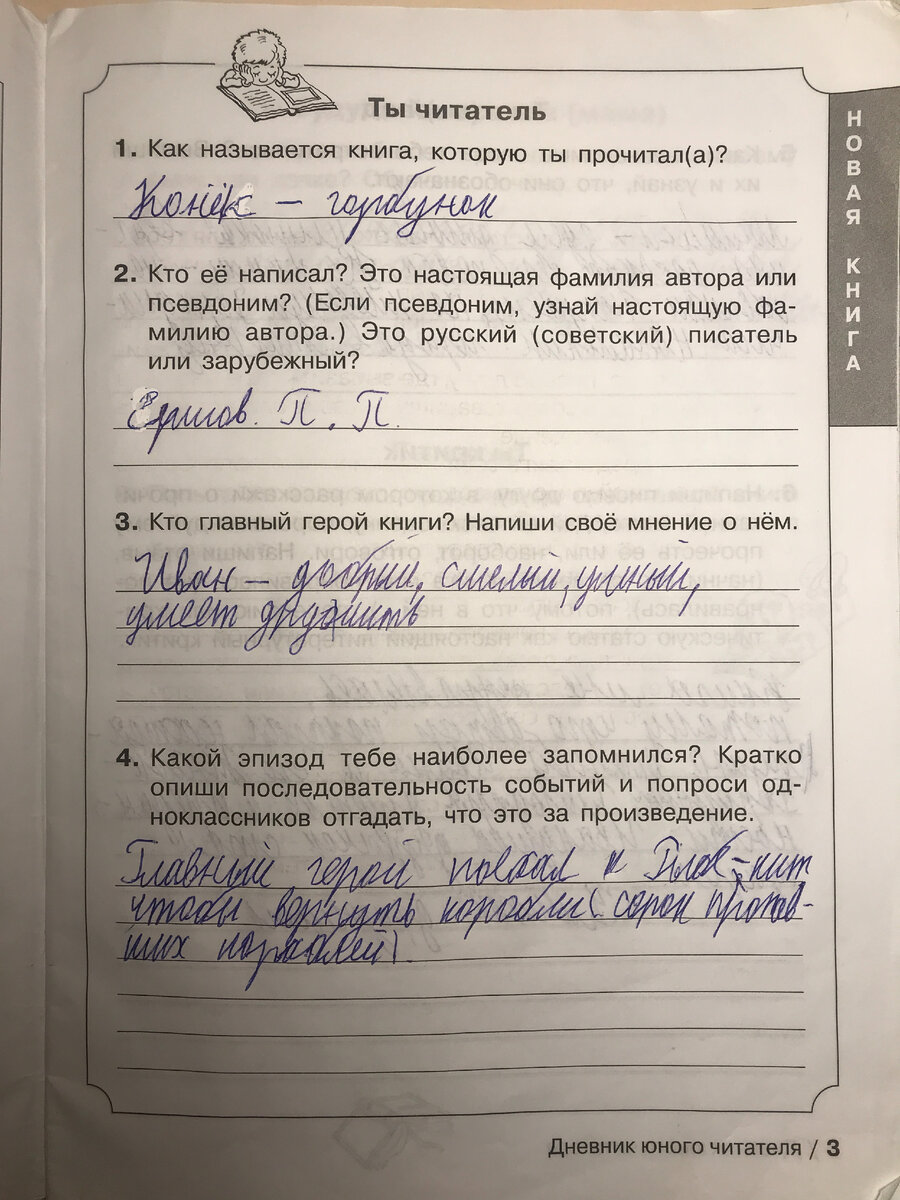 Ты читатель
НОВАЯ КНИГА
1. Как называется книга, которую ты прочитал(а)?
Конёк – горбунок
2. Кто её написал? Это настоящая фамилия автора или
псевдоним? (Если псевдоним, узнай настоящую фа-
милию автора.) Это русский (советский) писатель
или зарубежный?
Ершов. П. П.
3. Кто главный герой книги? Напиши своё мнение о нём.
Иван – добрый, смелый, умный,
умеет дружить
4. Какой эпизод тебе наиболее запомнился? Кратко
опиши последовательность событий и попроси од-
ноклассников отгадать, что это за произведение.
Главный герой поехал к кит
чтобы вернуть корабли (сорок
Дневник юного читателя / 3